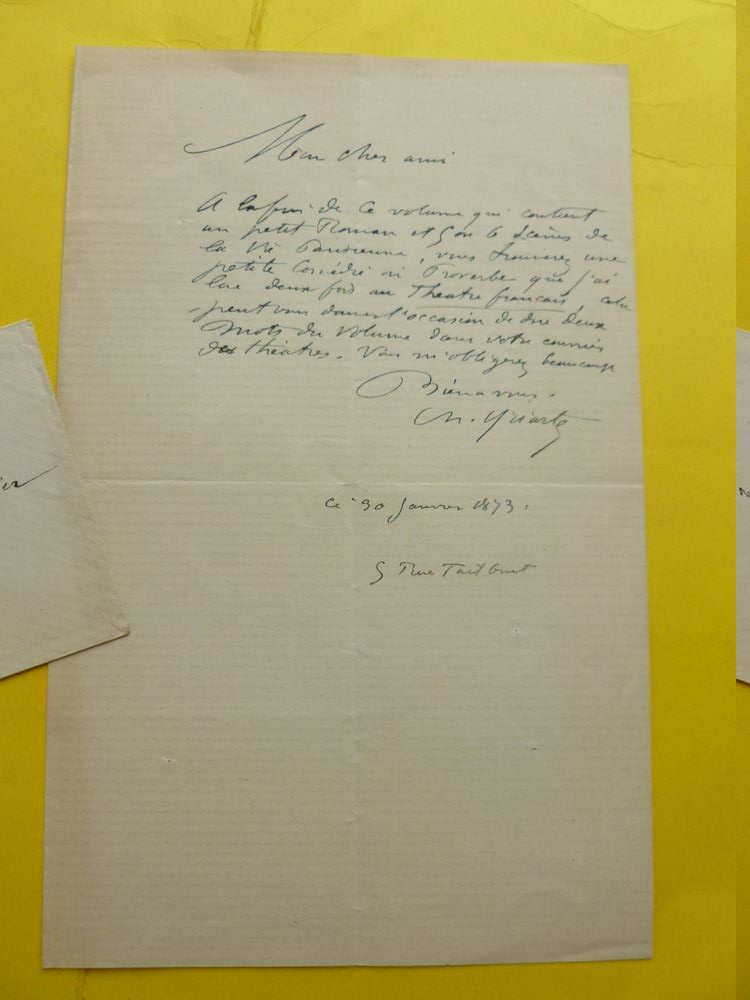 Mon cher ami
A la fin de ce volume qui contient
un petit Roman et 5 ou 6 Scènes de
la Vie Parisienne, vous trouverez une
petite Comédie ou Proverbe que j'ai
lue deux fois au Theatre français, cela
peut vous donner l'occasion de dire deux
mots du volume dans votre courrier
des théatres. Vous m'obligerez beaucoup
Bien a vous.
Ch. Yriarte
Ce 30 Janvier 1873.
5 Rue Taitbout